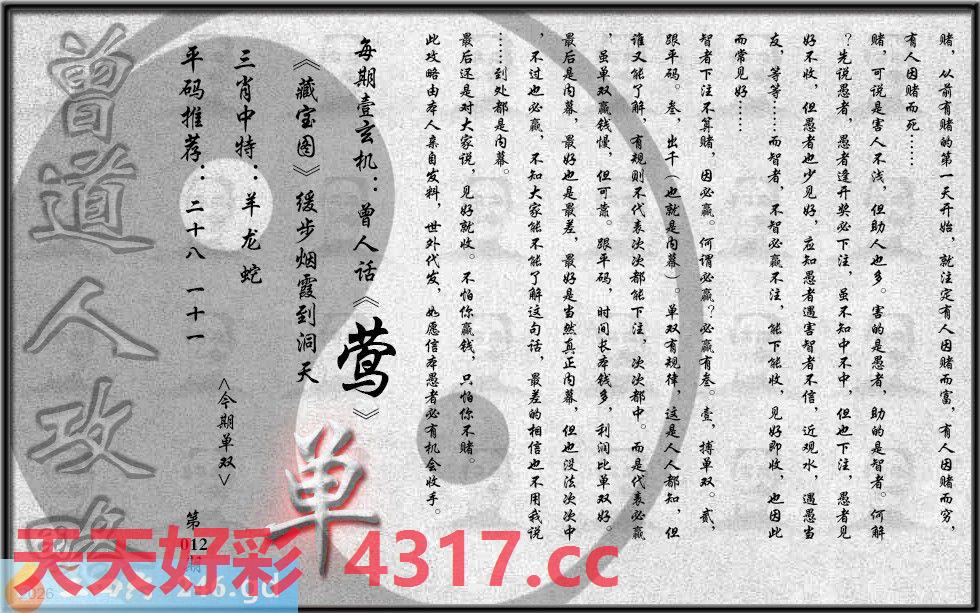 赌，从前有赌的第一天开始，就注定有人因赌而富，有人因赌而穷，
有人因赌而死……
赌，可说是害人不浅，但助人也多。害的是愚者，助的是智者。何解
？先说愚者，愚者逢开奖必下注，虽不知中不中，但也下注，愚者见
好不收，但愚者也少见好，应知愚者遇害智者不信，近观水，遇愚当
友，等等……而智者，不智必赢不注，能下能收，见好即收，也因此
而常见好……
智者下注不算赌，因必赢。何谓必赢？必赢有叁。壹，搏单双。贰，
跟平码。叁，出千（也就是内幕）。单双有规律，这是人人都知，但
谁又能了解，有规则不代表次次都能下注，次次都中。而是代表必赢
，虽单双赢钱慢，但可靠。跟平码，时间长本钱多，利润比单双好。
最后是内幕，最好也是最差，最好是当然真正内幕，但也没法次次中
，不过也必赢，不知大家能不能了解这句话，最差的相信也不用我说
……到处都是内幕。
最后还是对大家说，见好就收。不怕你赢钱，只怕你不赌。
此攻略由本人亲自发料，世外代发，如愿信本愚者必有机会收手。
每期壹玄机：曾人话《莺》
《藏宝图》缓步烟霞到洞天
单
三肖中特：羊 龙 蛇
<今期单双>
平码推荐：二十八 一十一
第012期
曾道人攻略
天天好彩 4317.cc
2026